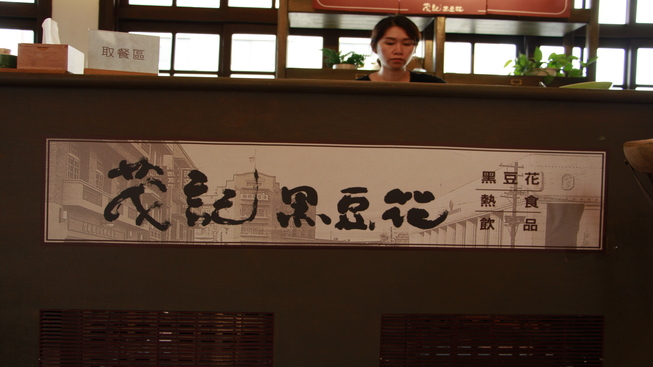 茂記黑豆花
取餐區
茂記黑豆花
黑豆花
熱食
飲品